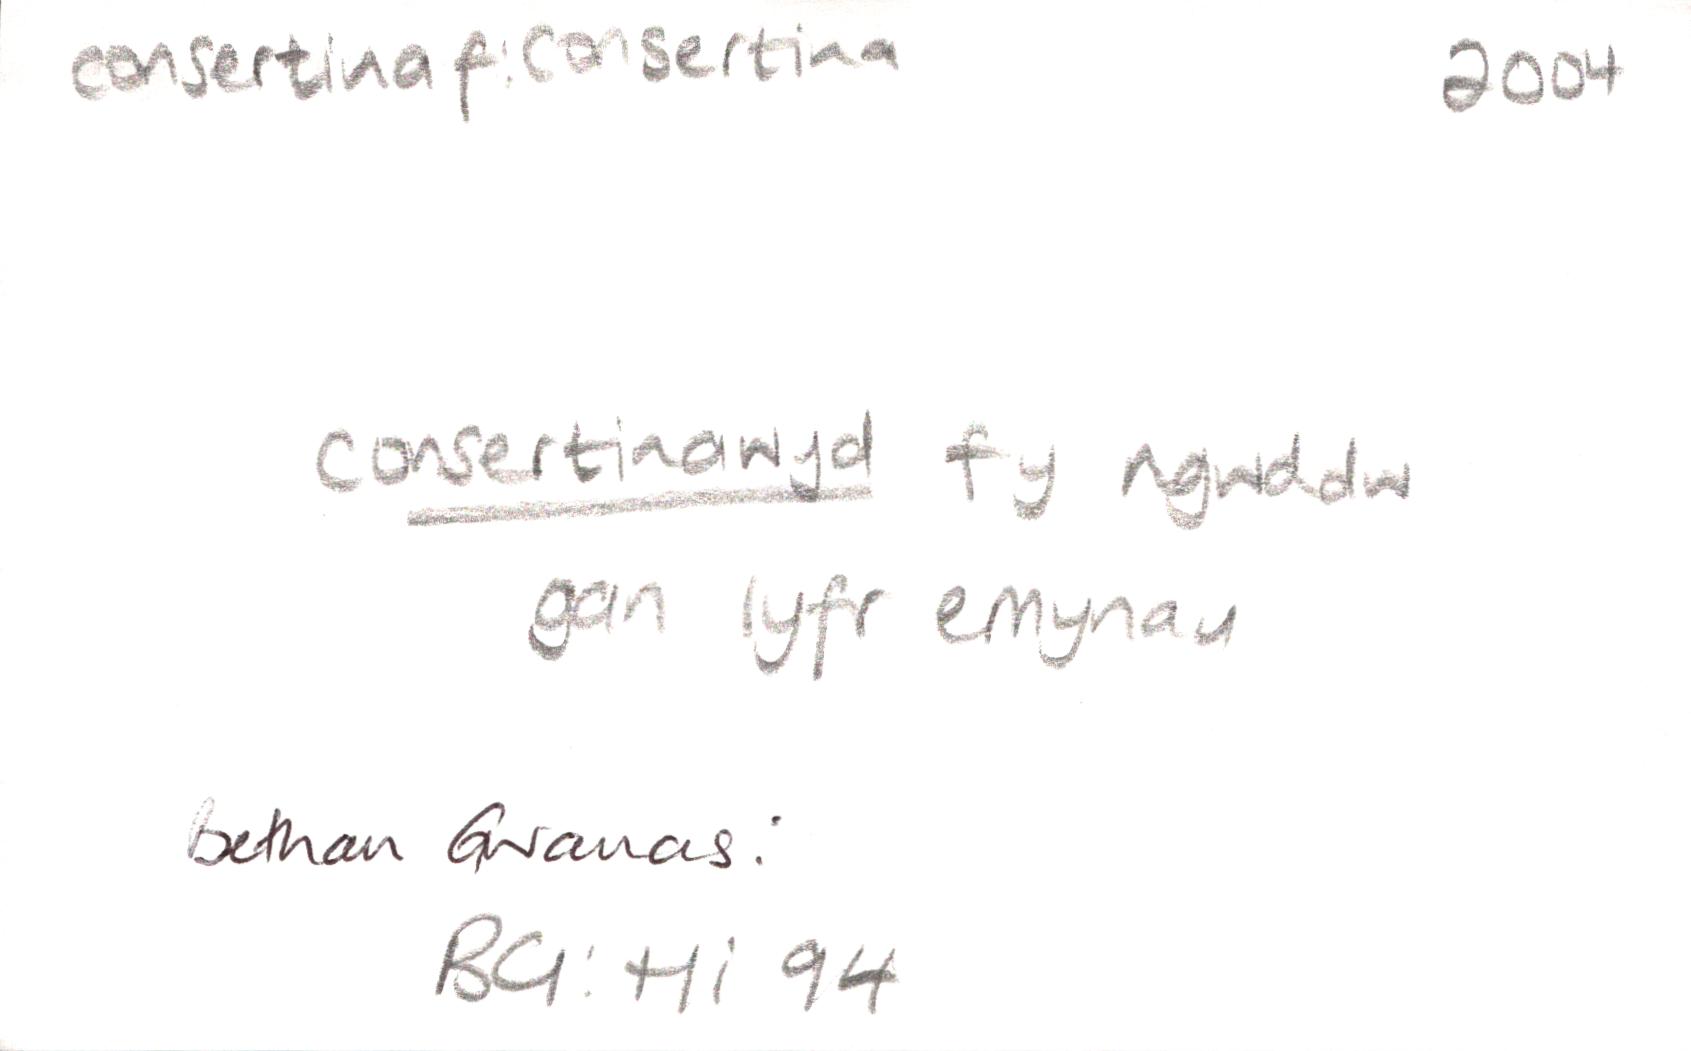 consertinaf: consertina 2004
consertinawyd fy ngwddw
gan lyfr emynau
Bethan Gwanas:
BG: Hi 94